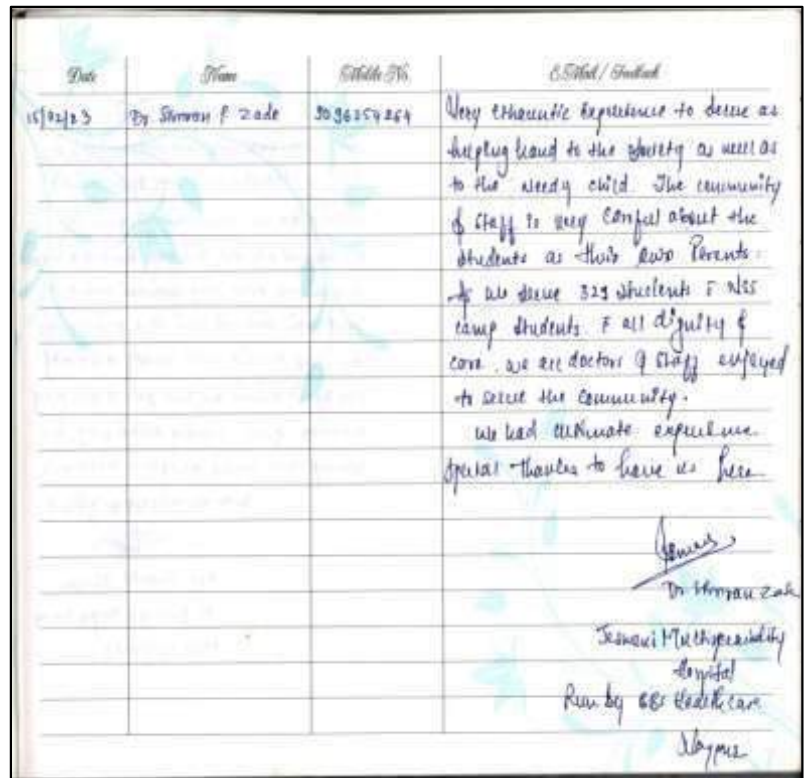 Date Name Mobile No. E.Mail / Feedback
15/02/23 Dr Shravan P Zade Very Experience to serve as
helping hand to the society as well as
to the needy child. The community
of staff is very about the
students as their own Parents.
we serve 329 students NSS
camp students. all dignity of
care. we are doctors staff enjoyed
to serve the community.
we had ultimate experience
special thanks to have us here
Dr Shravan Zade
Jesnani Multispeciality
Hospital
Run by Healthcare
Nagpur